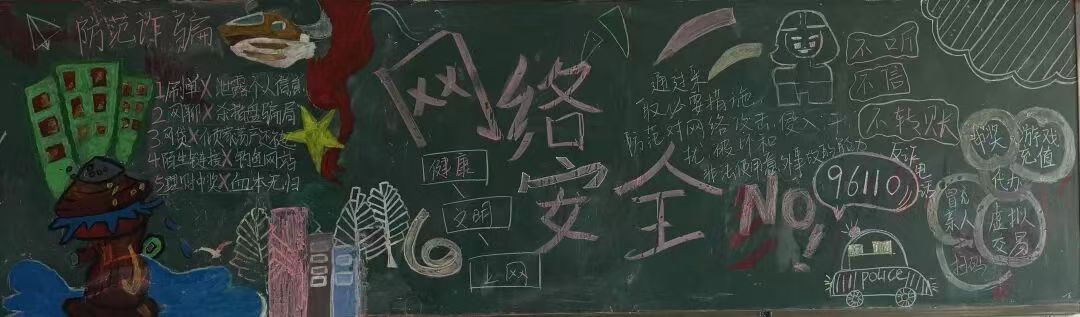 防范诈骗
1刷单X泄露个人信息
2网聊X杀猪盘骗局
3网贷X倾家荡产
4陌生链接X钓鱼网站
5理财中奖X血本无归
网络
安全
健康
文明
上网
通过采
取必要措施
防范对网络攻击、侵入、干
扰、破坏和
非法使用
能力
NO!
不听
不信
不转账
反诈
电话
96110
POLICE
抽奖
游戏
充值
代办
冒充
亲人
虚拟
交易
扫码